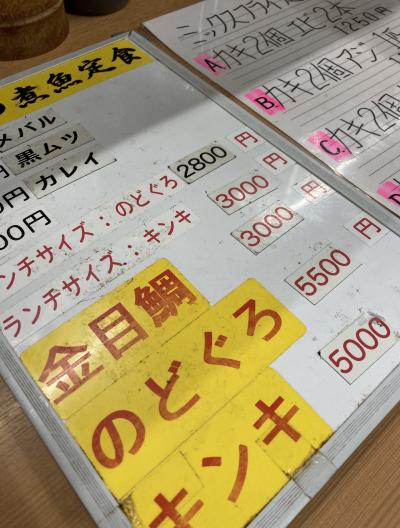 煮魚定食
メバル
黒ムツ
円 カレイ
00円
ンチサイズ：のどぐろ 2800 円
ランチサイズ：キンキ 3000 円
金目鯛 3000 円
のどぐろ 5500 円
キンキ 5000
ミックスフライ
A カキ2個 エビ2本
1250円
B カキ2個 アジ1
C カキ2個
D